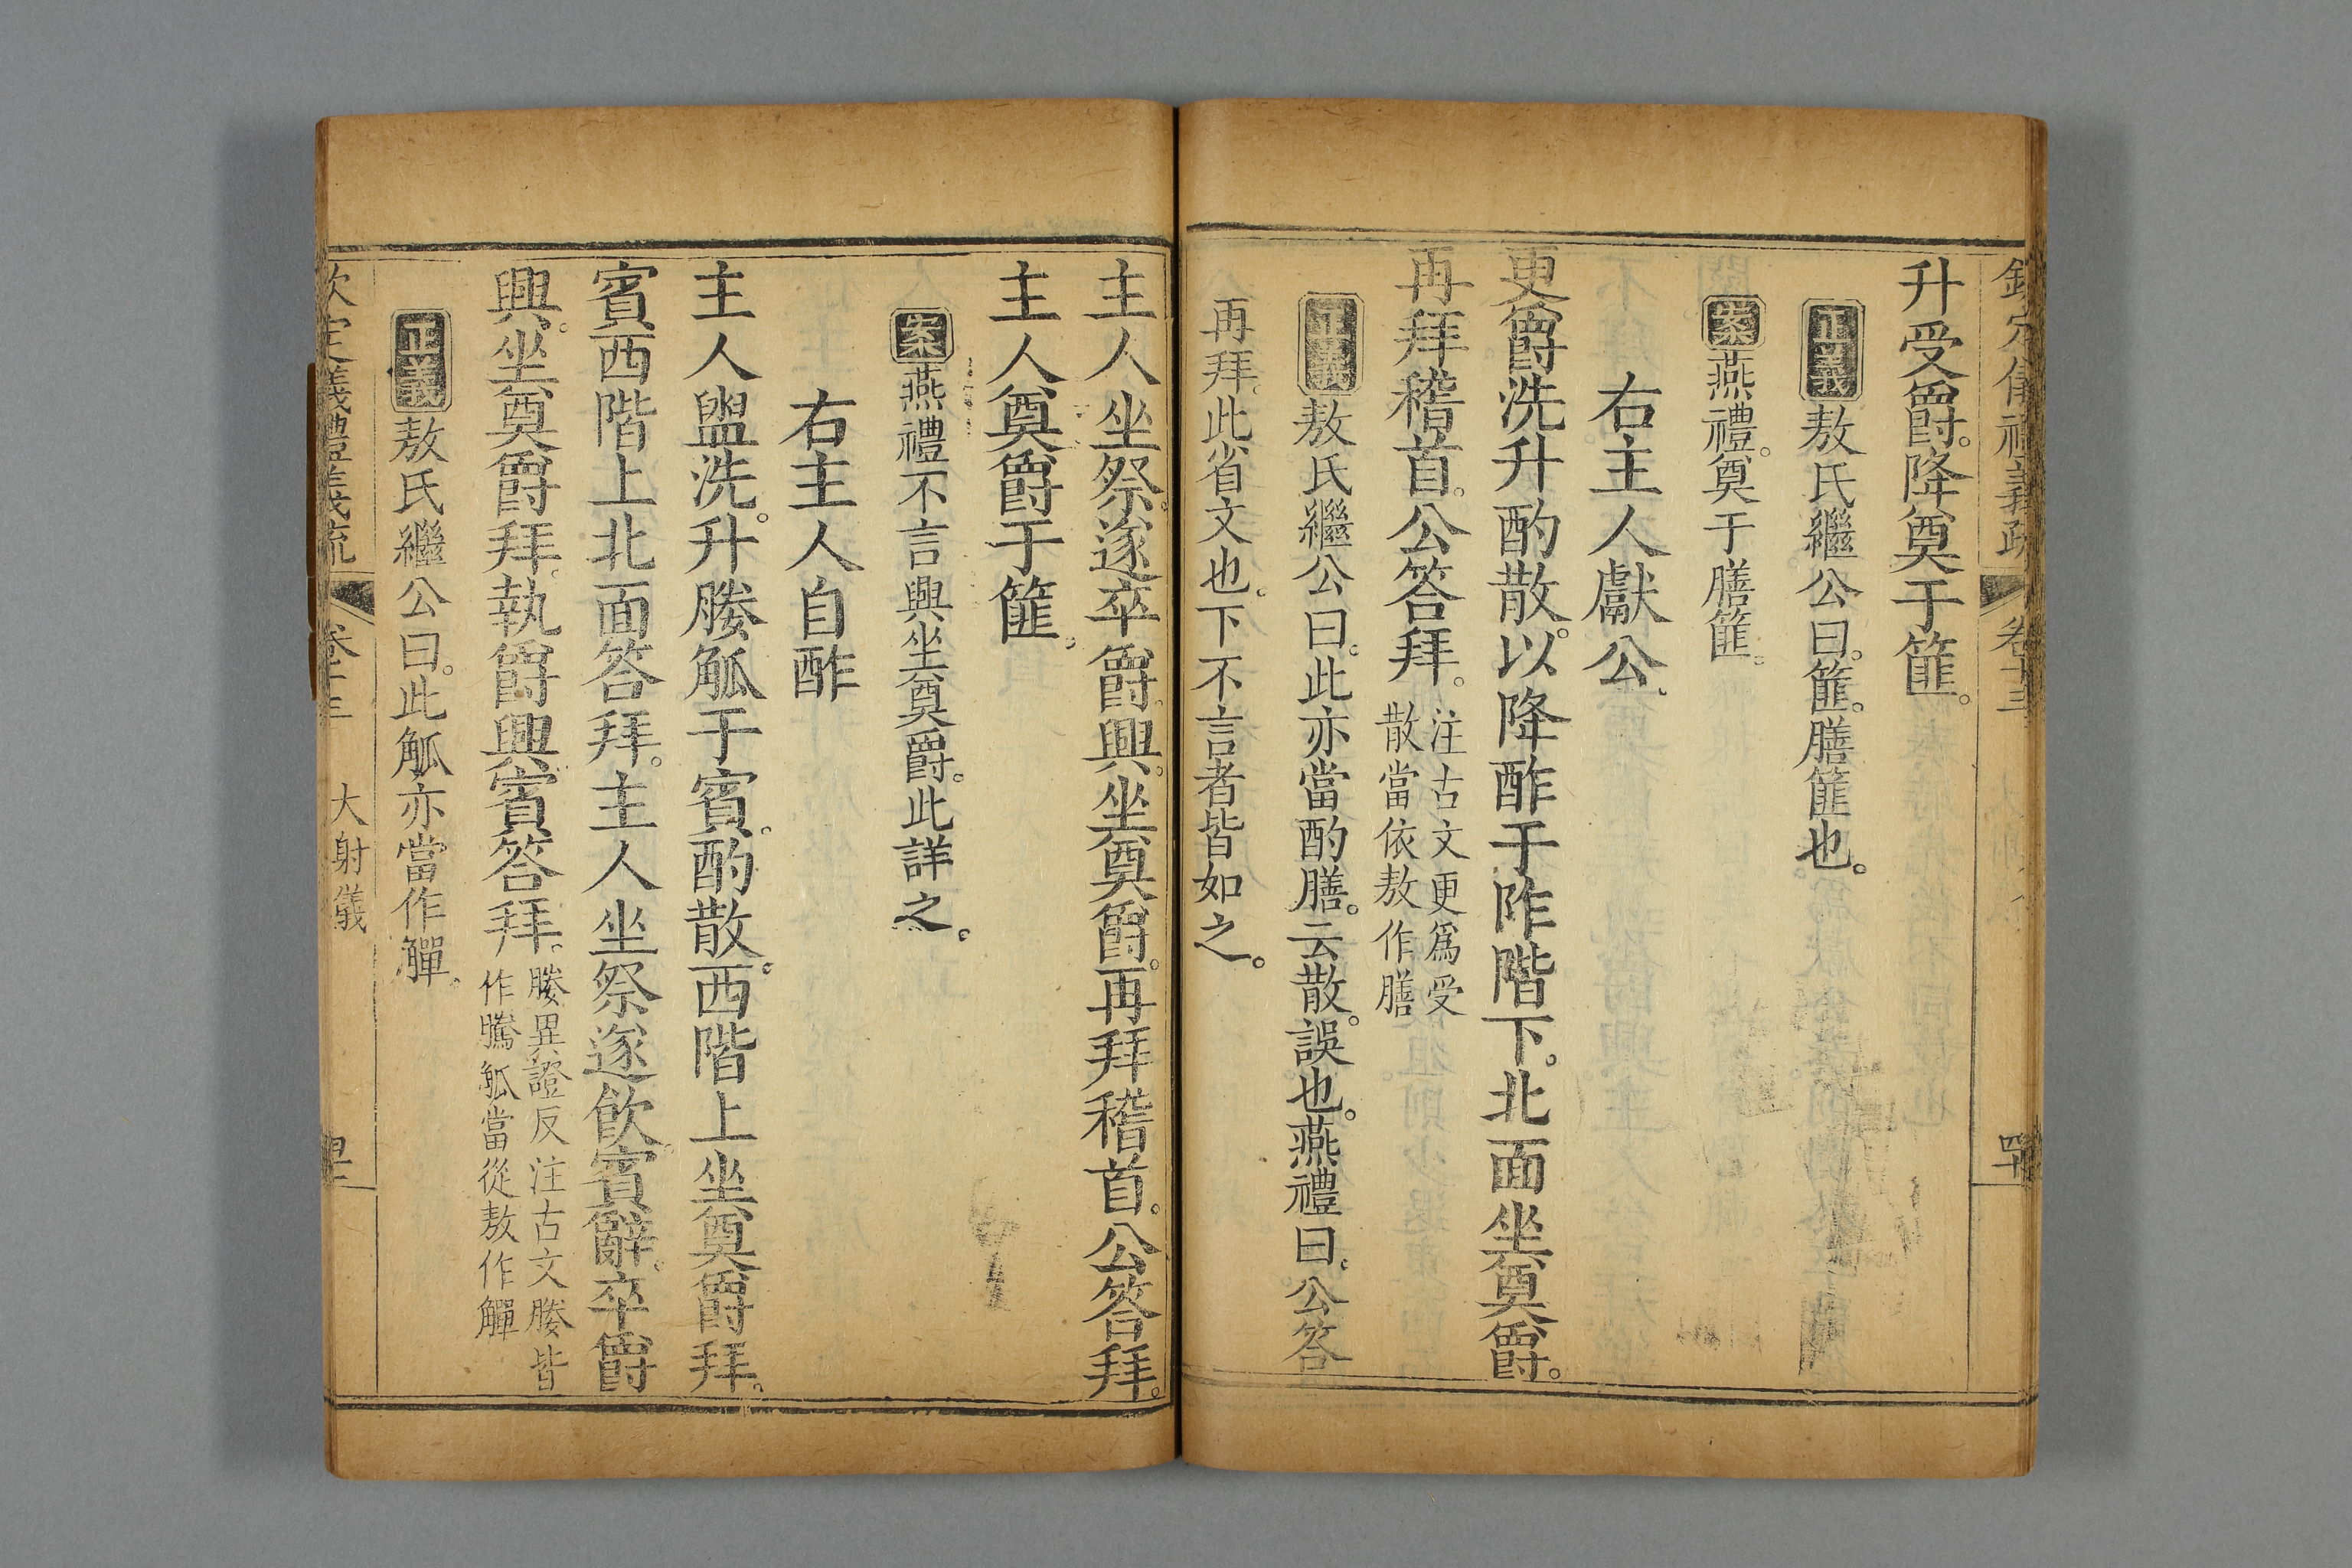 欽定儀禮義疏 卷十三 四十
升受爵。降奠于篚。
正義 敖氏繼公曰。篚。膳篚也。
案 燕禮。奠于膳篚。
右主人獻公。
更爵洗升酌散。以降酢于阼階下。北面坐奠爵。
再拜稽首。公答拜。注古文更爲受
散當依敖作膳
正義 敖氏繼公曰。此亦當酌膳。云散。誤也。燕禮曰。公答
再拜。此省文也。下不言者皆如之。
主人坐祭。遂卒爵。興。坐奠爵。再拜稽首。公答拜。
主人奠爵于篚。
案 燕禮不言興坐奠爵。此詳之。
右主人自酢
主人盥洗。升媵觚于賓。酌散。西階上坐奠爵拜。
賓西階上北面答拜。主人坐祭。遂飲。賓辭。卒爵
興。坐奠爵拜。執爵興。賓答拜。媵異證反注古文媵皆
作騰觚當從敖作觶
正義 敖氏繼公曰。此觚亦當作觶。
欽定義禮義疏 卷十三 大射儀